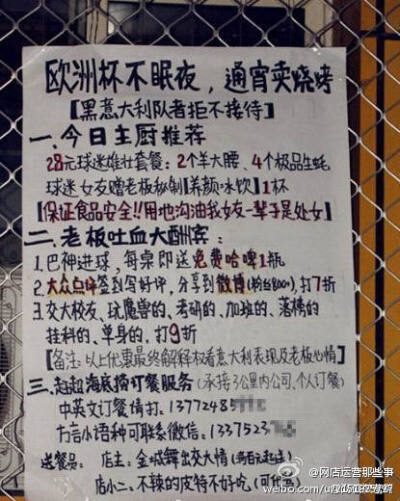 欧洲杯不眠夜，通宵卖烧烤
【黑意大利队者拒不接待】
一、今日主厨推荐
28元球迷雄壮套餐：2个羊大腰、4个极品生蚝
球迷女友赠老板秘制【养颜冰饮】1杯
【保证食品安全!!用地沟油我女友一辈子是处女】
二、老板吐血大酬宾：
1.巴神进球，每桌即送免费哈啤1瓶
2.大众点评签到写好评，分享到微博(粉丝800+)，打7折
3.交大校友、玩魔兽的、考研的、加班的、落榜的
挂科的、单身的、打9折
【备注：以上优惠最终解释权看意大利表现及老板心情】
三、赳赳海底捞订餐服务（承接3公里内公司、个人订餐）
中英文订餐请打：13772485
方言小语种可联系微信：1337523
送餐员：店主：金城舞出致大情
店小二：不辣的皮特不好吃（可代
@网店运营那些事
weibo.com/u/